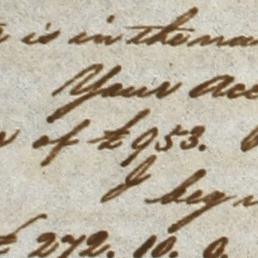 is in the na
Your Acc
of £953.
I beg
£ 272. 10. 0.